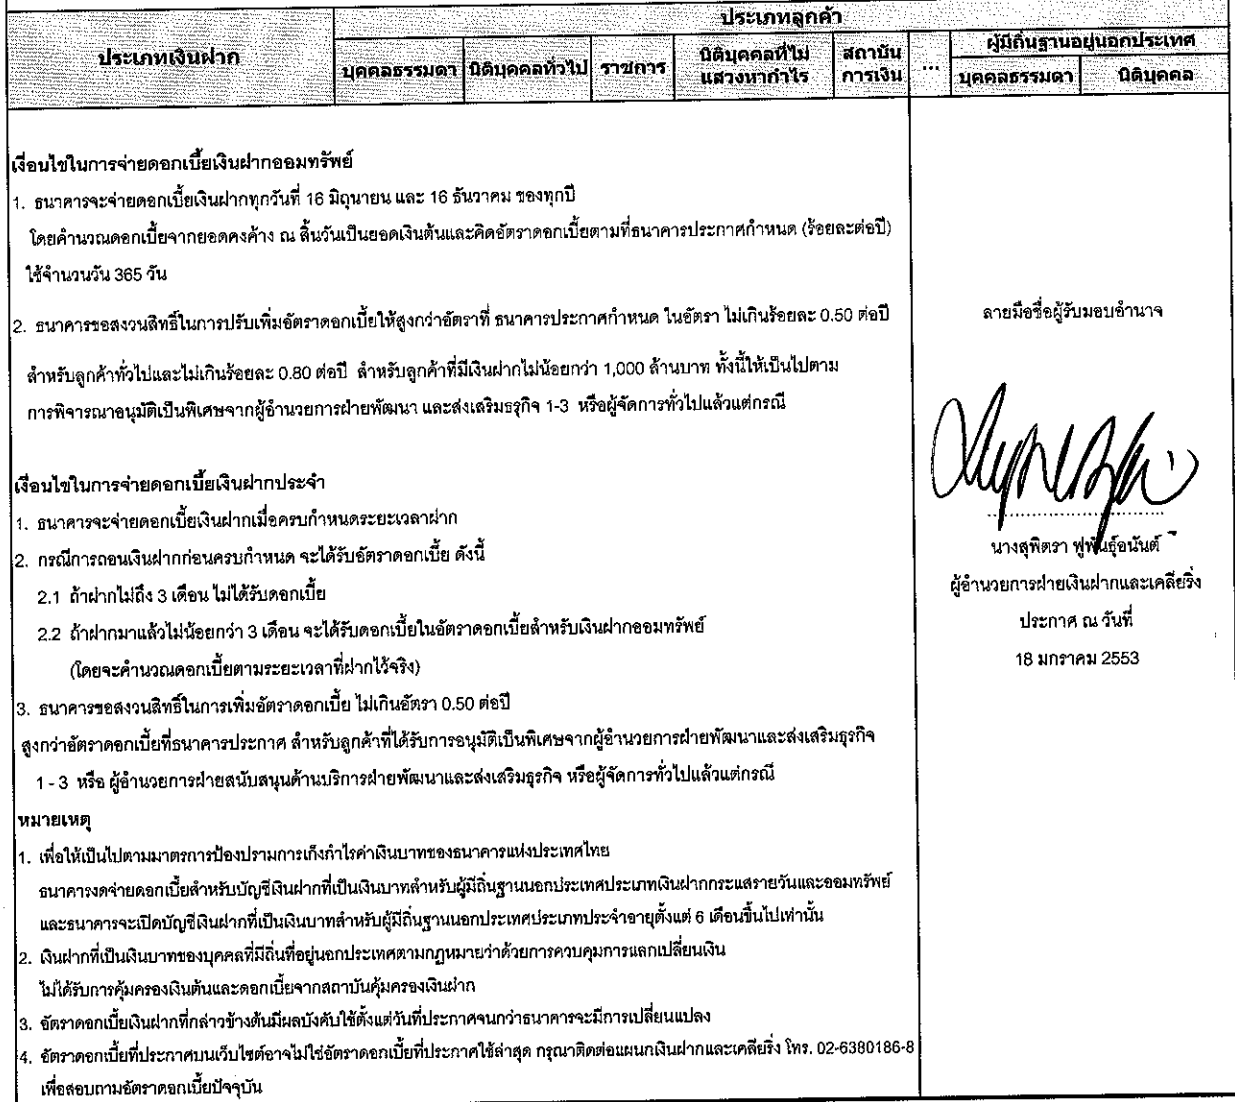 ประเภทเงินฝาก
ประเภทลูกค้า
บุคคลธรรมดา
นิติบุคคลทั่วไป
ราชการ
นิติบุคคลที่ไม่
แสวงหากำไร
สถาบัน
การเงิน
...
ผู้มีถิ่นฐานอยู่นอกประเทศ
บุคคลธรรมดา
นิติบุคคล
เงื่อนไขในการจ่ายดอกเบี้ยเงินฝากออมทรัพย์
1. ธนาคารจะจ่ายดอกเบี้ยเงินฝากทุกวันที่ 16 มิถุนายน และ 16 ธันวาคม ของทุกปี
โดยคำนวณดอกเบี้ยจากยอดคงค้าง ณ สิ้นวันเป็นยอดเงินต้นและคิดอัตราดอกเบี้ยตามที่ธนาคารประกาศกำหนด (ร้อยละต่อปี)
ใช้จำนวนวัน 365 วัน
2. ธนาคารขอสงวนสิทธิ์ในการปรับเพิ่มอัตราดอกเบี้ยให้สูงกว่าอัตราที่ ธนาคารประกาศกำหนด ในอัตรา ไม่เกินร้อยละ 0.50 ต่อปี
สำหรับลูกค้าทั่วไปและไม่เกินร้อยละ 0.80 ต่อปี สำหรับลูกค้าที่มีเงินฝากไม่น้อยกว่า 1,000 ล้านบาท ทั้งนี้ให้เป็นไปตาม
การพิจารณาอนุมัติเป็นพิเศษจากผู้อำนวยการฝ่ายพัฒนา และส่งเสริมธุรกิจ 1-3 หรือผู้จัดการทั่วไปแล้วแต่กรณี
เงื่อนไขในการจ่ายดอกเบี้ยเงินฝากประจำ
1. ธนาคารจะจ่ายดอกเบี้ยเงินฝากเมื่อครบกำหนดระยะเวลาฝาก
2. กรณีการถอนเงินฝากก่อนครบกำหนด จะได้รับอัตราดอกเบี้ย ดังนี้
2.1 ถ้าฝากไม่ถึง 3 เดือน ไม่ได้รับดอกเบี้ย
2.2 ถ้าฝากมาแล้วไม่น้อยกว่า 3 เดือน จะได้รับดอกเบี้ยในอัตราดอกเบี้ยสำหรับเงินฝากออมทรัพย์
(โดยจะคำนวณดอกเบี้ยตามระยะเวลาที่ฝากไว้จริง)
3. ธนาคารขอสงวนสิทธิ์ในการเพิ่มอัตราดอกเบี้ย ไม่เกินอัตรา 0.50 ต่อปี
สูงกว่าอัตราดอกเบี้ยที่ธนาคารประกาศ สำหรับลูกค้าที่ได้รับการอนุมัติเป็นพิเศษจากผู้อำนวยการฝ่ายพัฒนาและส่งเสริมธุรกิจ
1 - 3 หรือ ผู้อำนวยการฝ่ายสนับสนุนด้านบริการฝ่ายพัฒนาและส่งเสริมธุรกิจ หรือผู้จัดการทั่วไปแล้วแต่กรณี
หมายเหตุ
1. เพื่อให้เป็นไปตามมาตรการป้องปรามการเก็งกำไรค่าเงินบาทของธนาคารแห่งประเทศไทย
ธนาคารงดจ่ายดอกเบี้ยสำหรับบัญชีเงินฝากที่เป็นเงินบาทสำหรับผู้มีถิ่นฐานนอกประเทศประเภทเงินฝากกระแสรายวันและออมทรัพย์
และธนาคารจะเปิดบัญชีเงินฝากที่เป็นเงินบาทสำหรับผู้มีถิ่นฐานนอกประเทศประเภทประจำอายุตั้งแต่ 6 เดือนขึ้นไปเท่านั้น
2. เงินฝากที่เป็นเงินบาทของบุคคลที่มีถิ่นที่อยู่นอกประเทศตามกฎหมายว่าด้วยการควบคุมการแลกเปลี่ยนเงิน
ไม่ได้รับการคุ้มครองเงินต้นและดอกเบี้ยจากสถาบันคุ้มครองเงินฝาก
3. อัตราดอกเบี้ยเงินฝากที่กล่าวข้างต้นมีผลบังคับใช้ตั้งแต่วันที่ประกาศจนกว่าธนาคารจะมีการเปลี่ยนแปลง
4. อัตราดอกเบี้ยที่ประกาศบนเว็บไซต์อาจไม่ใช่อัตราดอกเบี้ยที่ประกาศใช้ล่าสุด กรุณาติดต่อแผนกเงินฝากและเคลียริ่ง โทร. 02-6380186-8
เพื่อสอบถามอัตราดอกเบี้ยปัจจุบัน
ลายมือชื่อผู้รับมอบอำนาจ
นางสุพิตรา ฟูพันธุ์อนันต์
ผู้อำนวยการฝ่ายเงินฝากและเคลียริ่ง
ประกาศ ณ วันที่
18 มกราคม 2553